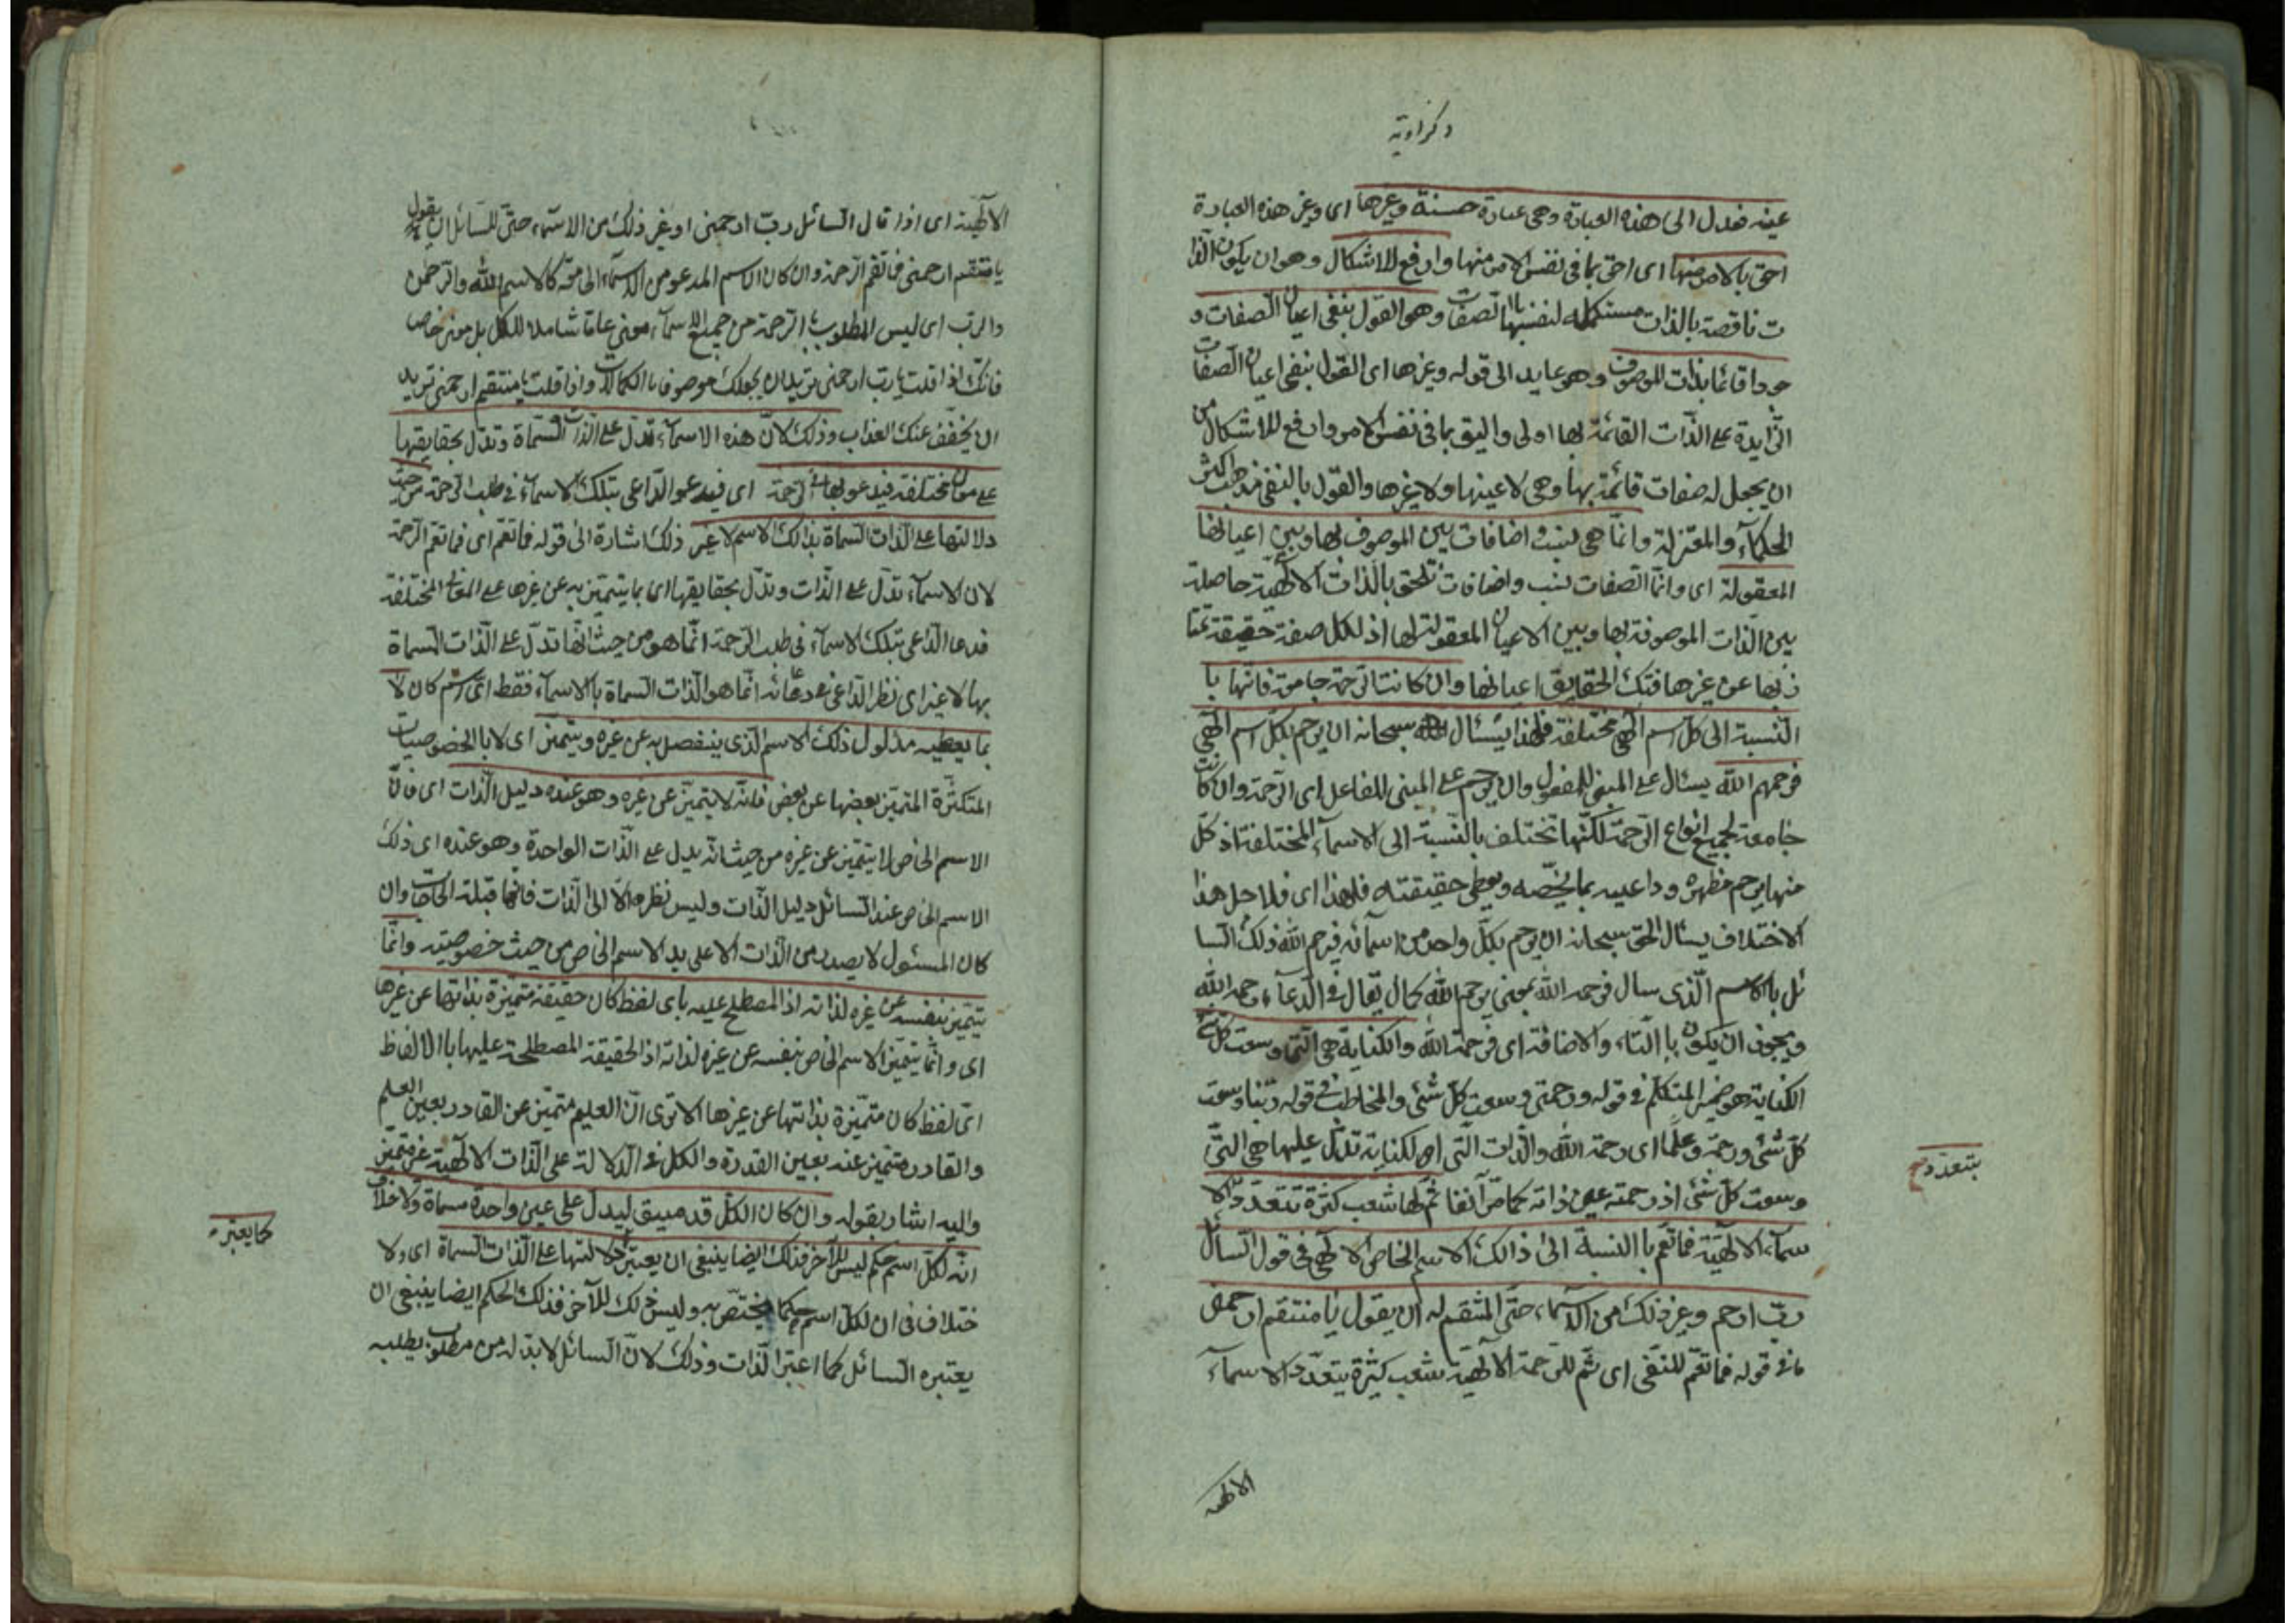 زكراوية
عينه فعدل الى هذه العبارة وهى عبارة حسنة وغيرها اى وغير هذه العبارة
احق بالامر منها اى احق بما فى نفس الامر منها وارفع للاشكال وهو ان يكون الذا
ت ناقصة بالذات مستكملة لنفسها باالصفات وهو القول بنفى اعيان الصفات و
جودا قائما بذات الموصوف وهو عايد الى قوله وغيرها اى القول بنفى اعيان الصفات
الزايدة على الذات القائمة بها اولى واليق بما فى نفس الامر وارفع للاشكال من
ان يجعل له صفات قائمة بها وهى لا عينها ولا غيرها والقول بالنفى مذهب اكثر
الحكمآء والمعتزلة وانما هى نسب واضافات بين الموصوف بها وبين اعيانها
المعقولة اى وانما الصفات نسب واضافات تلحق بالذات الالهية حاصلة
بين الذات الموصوفة بها وبين الاعيان المعقولة لها اذ لكل صفة حقيقة تمتا
ز بها عن غيرها فتلك الحقايق اعيانها وان كانت الرحمة جامعة فانها با
النسبة الى كل اسم الهى مختلفة فلهذا يسئال سبحانه ان يرحم بكل اسم الهى
فرحمهم الله يسئال على المبنى للمفعول وان يرحم على المبنى للفاعل اى الرحمة وان كانت
جامعة لجميع انواع الرحمة لكنها تختلف بالنسبة الى الاسمآء المختلفة اذ كل
منها يرحم مظهره وداعيه بما يخصه ويعطى حقيقته فلهذا اى فلاجل هذا
الاختلاف يسئال الحق سبحانه ان يرحم بكل واحد من اسمائه فيرحم الله ذلك السا
ئل باالاسم الذى سال فرحمه الله بمعنى يرحم الله كما يقال فى الدعآء رحمه الله
ويجوز ان يكون باالتاء والاضافة اى فرحمة الله والكناية هى التى وسعت كل شئ
الكناية هو ضمير المتكلم فى قوله ورحمتى وسعت كل شئ والمخاطب فى قوله ربنا وسعت
كل شئ ورحمة وعلما اى رحمة الله والذات التى الكناية تدل عليها هى التى
وسعت كل شئ اذ رحمته عين ذاته كما مر آنفا ثم لها شعب كثيرة تتعدد الا
بتعدد
سمآء الالهية فما تعم باالنسبة الى ذالك الاسم الخاص الالهى فى قول السائل
رب ارحم وغير ذلك من الاسماء حتى المنتقم له ان يقول يا منتقم ارحمنى
ما فى قوله فما تعم للنفى اى ثم للرحمة الالهية شعب كثيرة بتعدد الاسمآء
الالهية
الالهية اى اذا قال السائل رب ارحمنى او غير ذلك من الاسمآء حتى للسائل ان يقول
يا منتقم ارحمنى فما تعم الرحمة وان كان الاسم المدعو من الاسماء كالاسم الله والرحمن
والرب اى ليس المطلوب الرحمة من جميع الاسمآء معنى عاما شاملا للكل بل معنى خاص
فانك اذا قلت يا رب ارحمنى تريد ان يجعلك موصوفا باالكمالات واذا قلت يا منتقم ارحمنى تريد
ان يخفف عنك العذاب وذلك لان هذه الاسمآء تدل على الذات المسماة وتدل بحقايقها
على معان مختلفة فيدعو بها فى الرحمة اى فيدعو الداعى بتلك الاسمآء فى طلب الرحمة من حيث
دلالتها على الذات المسماة بذالك الاسم لا غير ذلك اشارة الى قوله فما تعم اى فما تعم الرحمة
لان الاسمآء تدل على الذات وتدل بحقايقها اى بما يتميز به عن غيرها على المعانى المختلفة
فدعا الداعى بتلك الاسمآء فى طلب الرحمة انما هو من حيث انها تدل على الذات المسماة
بها لا غير اى نظر الداعى فى دعائه انما هو الذات المسماة باالاسمآء فقط اى اسم كان لا
بما يعطيه مدلول ذلك الاسم الذى ينفصل به عن غيره ويتميز اى لا باالخصوصيات
المتكثرة المتميز بعضها عن بعض فانه لا يتميز عن غيره وهو عنده دليل الذات اى فان
الاسم الخاص لا يتميز عن غيره من حيث انه يدل على الذات الواحدة وهو عنده اى ذلك
الاسم الخاص عند السائل دليل الذات وليس نظره الا الى الذات فانها قبلة الحاجات وان
كان المسئول لا يصدر من الذات الا على يد الاسم الخاص من حيث خصوصيته وانما
يتميز بنفسه عن غيره لذاته اذ المصطلح عليه باى لفظ كان حقيقة متميزة بذاتها عن غيرها
اى وانما يتميز الاسم الخاص بنفسه عن غيره لذاته اذ الحقيقة المصطلحة عليها باالالفاظ
اى لفظ كان متميزة بذاتها عن غيرها الا ترى ان العليم متميز عن القادر بعين العلم
والقادر متميز عنه بعين القدرة والكل فى الدلالة على الذات الالهية غير متميز
واليه اشار بقوله وان كان الكل قد سيق ليدل على عين واحدة مسماة ولا خلاف
انه لكل اسم حكم ليس للآخر فذلك ايضا ينبغى ان يعتبر دلالتها على الذات المسماة اى ولا
كما يعتبر
ختلاف فى ان لكل اسم حكما يختص به وليس ذلك للآخر فذلك الحكم ايضا ينبغى ان
يعتبره السائل كما اعتبر الذات وذلك لان السائل لا بد له من مطلوب يطلبه